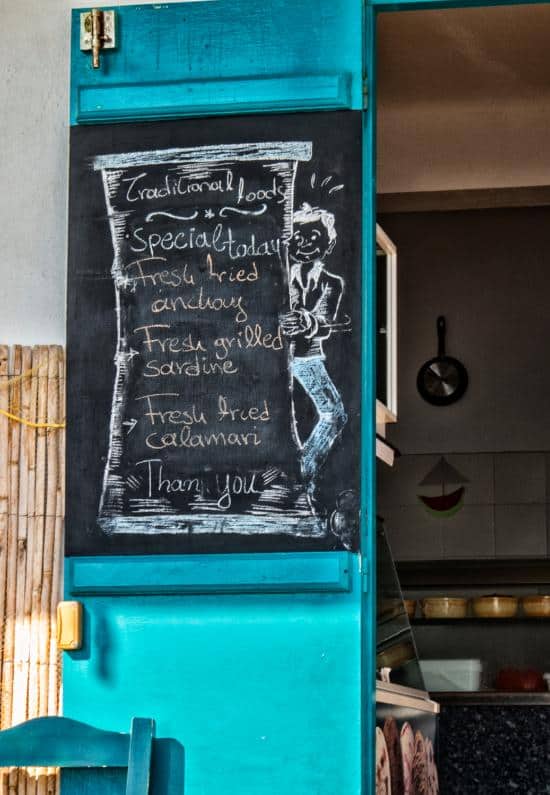 Traditional foods
Special today
Fresh fried
anchovy
Fresh grilled
sardine
Fresh fried
calamari
"Thank you"